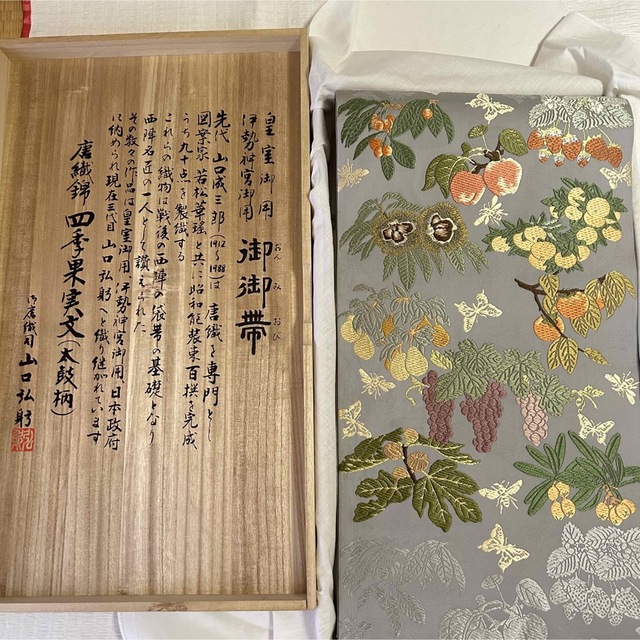 皇室御用
伊勢神宮御用
御御帯
おん み おび
先代 山口成三郎(1912〜1988)は 唐織を専門とし
図案家 若松華瑶と共に昭和能装束百撰を完成
うち九十点を製織する
これらの織物は戦後の西陣の袋帯の基礎となり
西陣名匠の一人として讃えられた
その数々の作品は皇室御用、伊勢神宮御用、日本政府
に納められ現在三代目 山口弘躬へと織り継がれています
唐織錦 四季果実文(太鼓柄)
御唐織司 山口弘躬